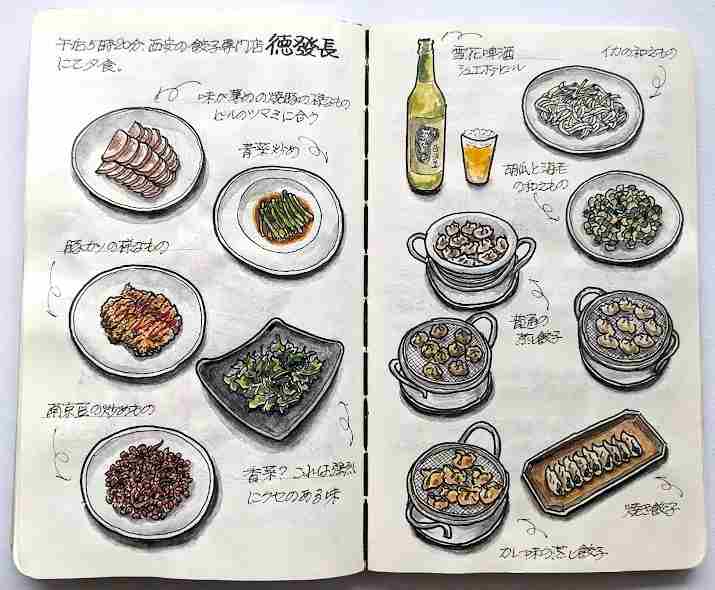 午后5時20分. 西安の餃子専門店 徳發長
にて夕食。
味が薄めの焼豚の様なもの
ビールのツマミに合う
青菜炒め
豚カツの様なもの
南京豆の炒めもの
香菜? これは強烈
にクセのある味
雪花啤酒
シュエホアビール
イカの和えもの
胡瓜と海毛
の和えもの
普通の
蒸し餃子
焼き餃子
カレー味の蒸し餃子